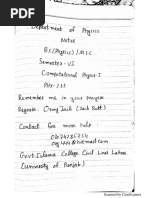 Department of Physics
Notes
BS (Physics) / MSC
Semester-VI
Computational Physics-I
Phy-
Remember me in your prayers
Regards:
Contact For more help
@hotmail.com
Govt. Islamia College Civil Lines Lahore
(University of Punjab)
Scanned by CamScanner